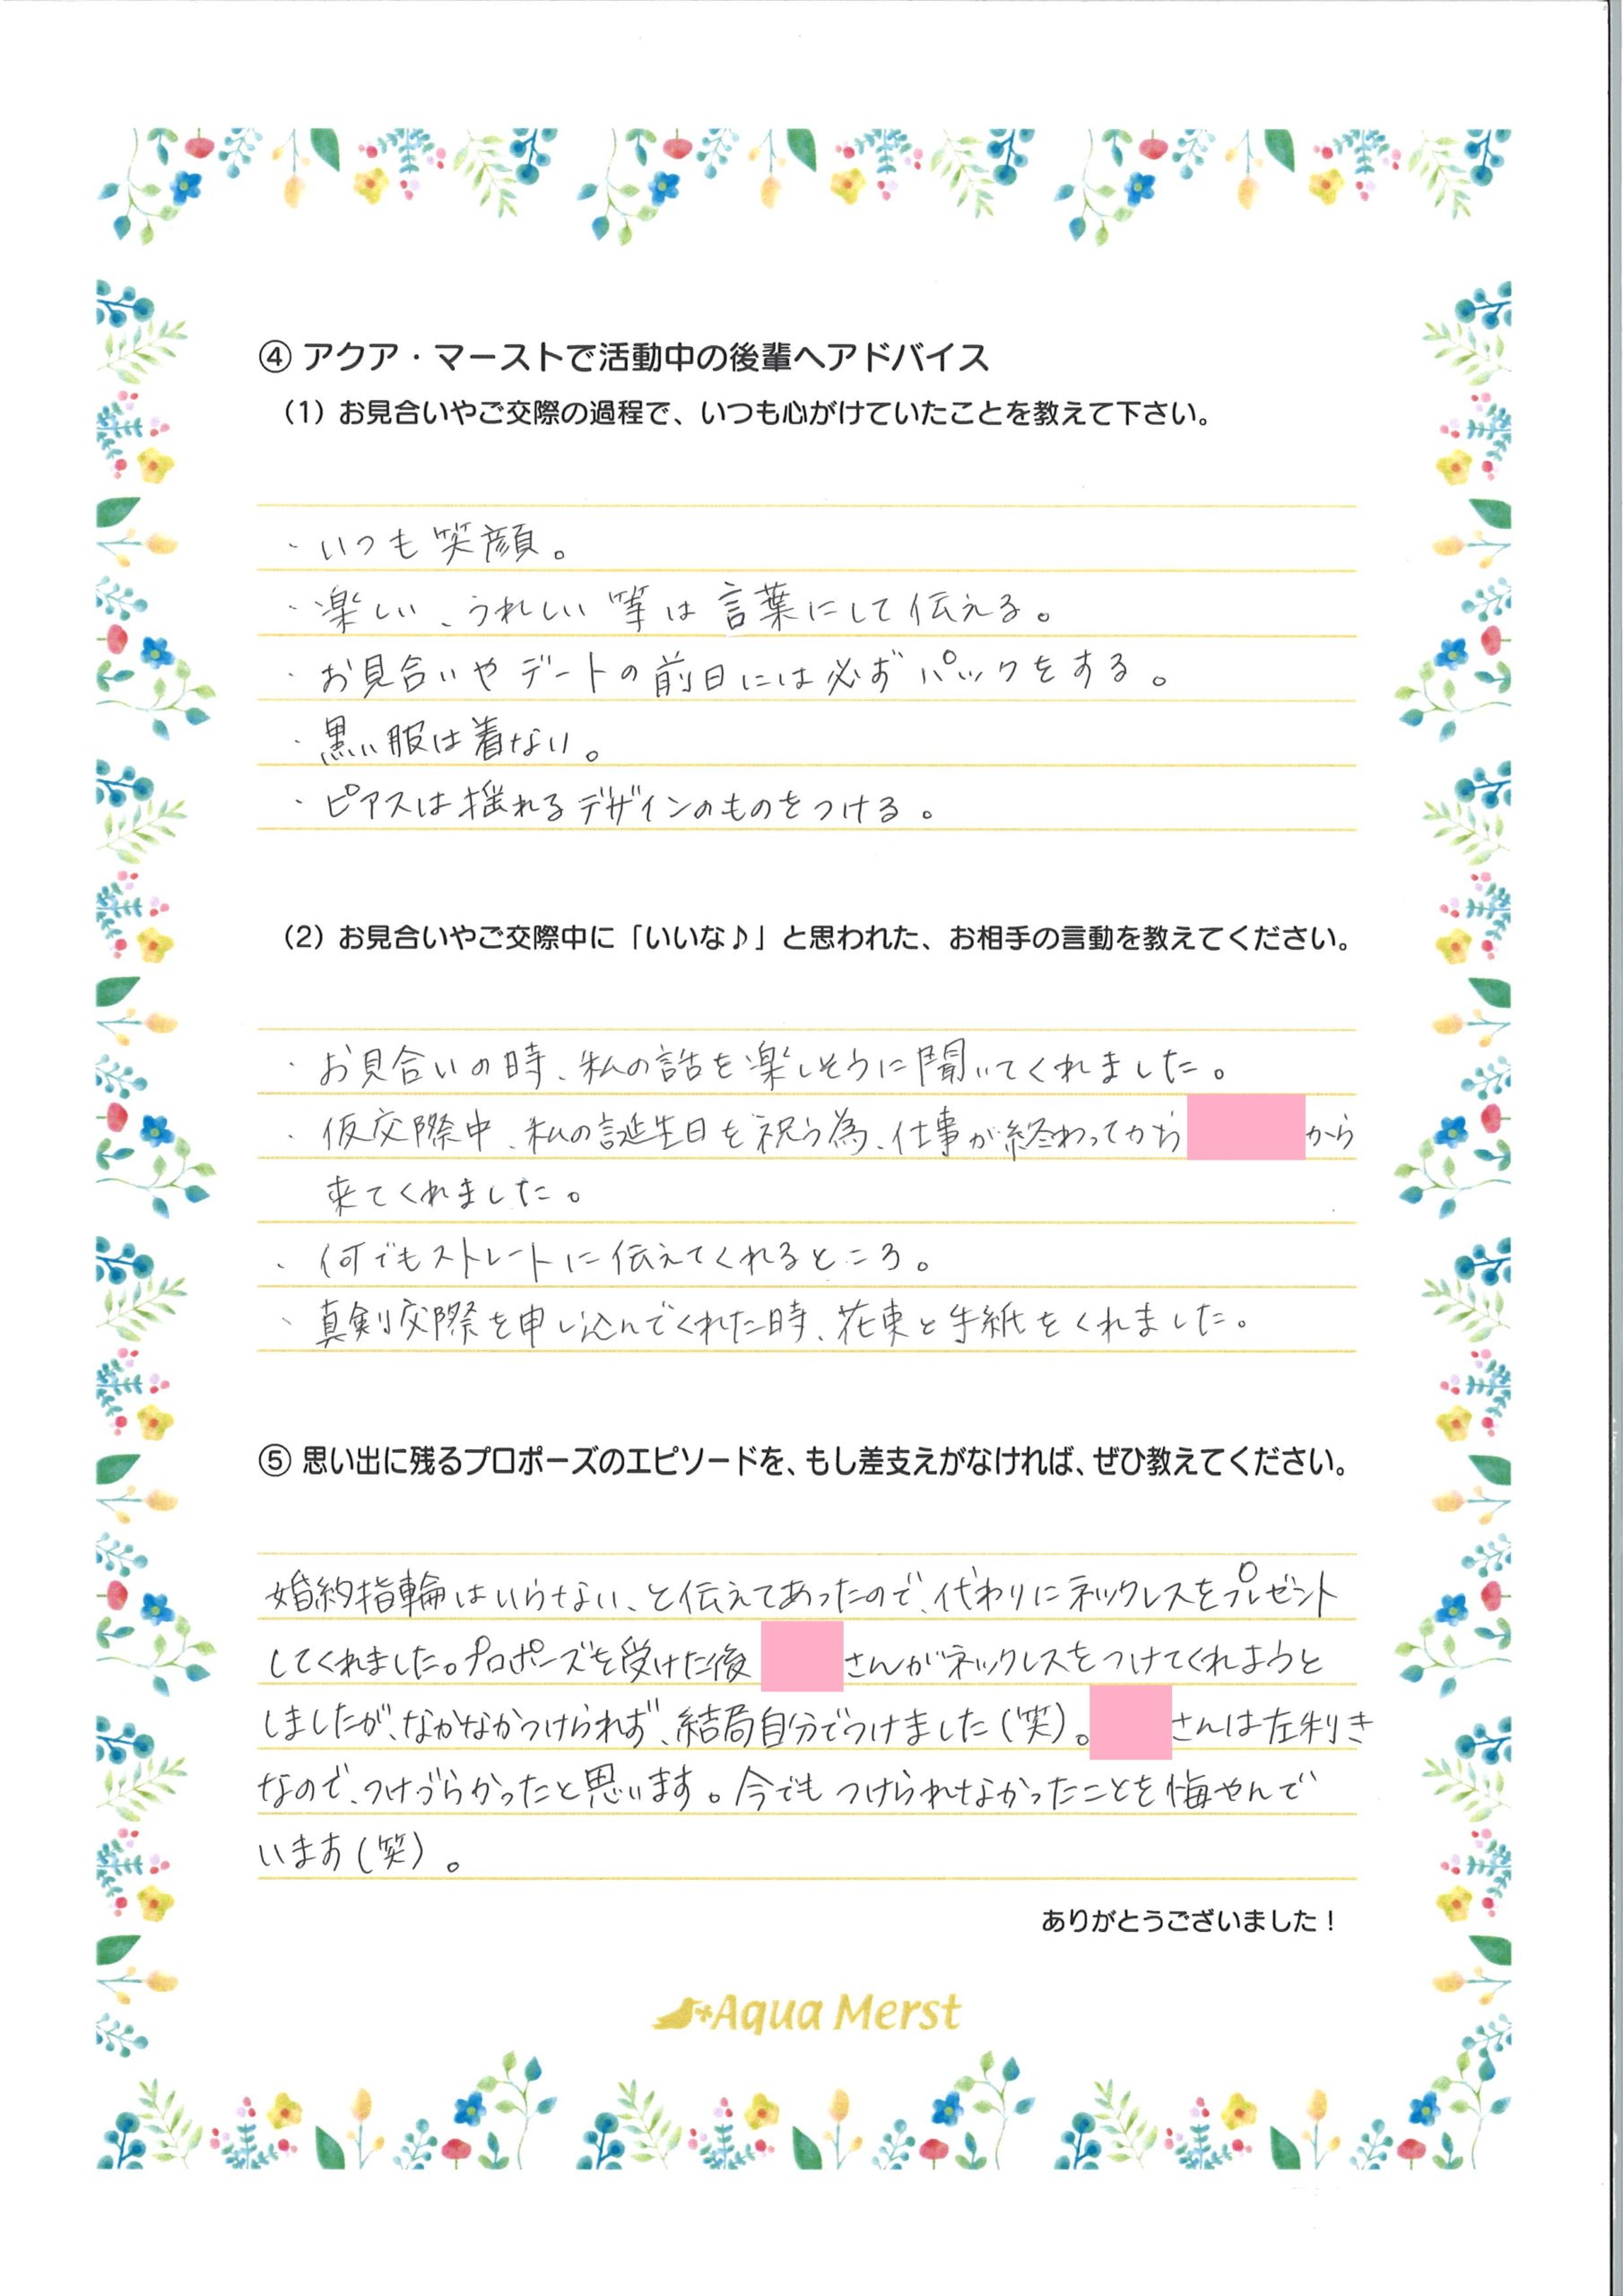 ④ アクア・マーストで活動中の後輩へアドバイス
（1）お見合いやご交際の過程で、いつも心がけていたことを教えて下さい。
・いつも笑顔。
・楽しい、うれしい等は言葉にして伝える。
・お見合いやデートの前日には必ずパックをする。
・黒い服は着ない。
・ピアスは揺れるデザインのものをつける。
（2）お見合いやご交際中に「いいな♪」と思われた、お相手の言動を教えてください。
・お見合いの時、私の話を楽しそうに聞いてくれました。
・仮交際中、私の誕生日を祝う為、仕事が終わってから から
来てくれました。
・何でもストレートに伝えてくれるところ。
・真剣交際を申し込んでくれた時、花束と手紙をくれました。
⑤ 思い出に残るプロポーズのエピソードを、もし差支えがなければ、ぜひ教えてください。
婚約指輪はいらない、と伝えてあったので、代わりにネックレスをプレゼント
してくれました。プロポーズを受けた後 さんがネックレスをつけてくれようと
しましたが、なかなかつけられず、結局自分でつけました（笑）。 さんは左利き
なので、つけづらかったと思います。今でもつけられなかったことを悔やんで
います（笑）。
ありがとうございました！
Aqua Merst